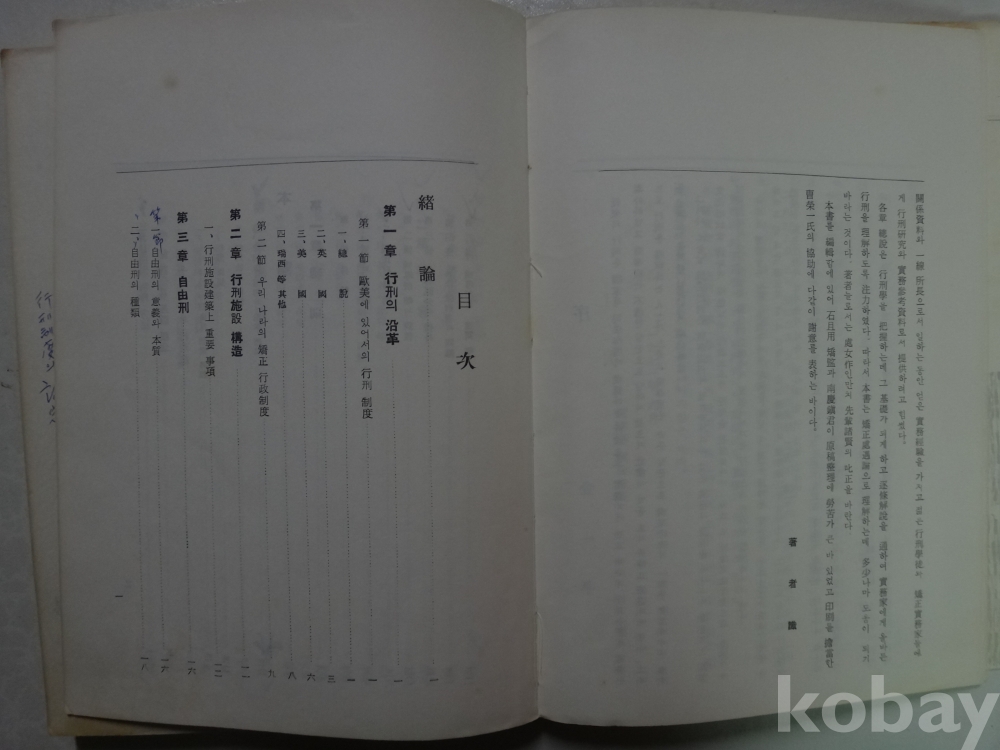 關係資料와 一線 所長으로서 일하는 동안 얻은 實務經驗을 가지고 젊은 行刑學徒와 矯正實務家들에
게 行刑硏究와 實務參考資料로서 提供하려고 힘썼다.
各章 總說은 行刑學을 把握하는데 그 基礎가 되게 하고 逐條解說을 通하여 實務家에게 올바른
行刑을 理解하도록 注力하였다. 따라서 本書는 矯正處遇論으로 理解하는데 多少나마 도움이 되기
바라는 것이다. 著者로서는 處女作인만치 先輩諸賢의 叱正을 바란다
本書를 編輯함에 있어 石且用 과 南慶 君이 原稿整理에 勞苦가 큰 바 있었고 印刷를 擔當한
曺榮一氏의 協助에 다같이 謝意를 表하는 바이다.
著者 識
目次
緖論 一
第一章 行刑의 沿革 一
第一節 歐美에 있어서의 行刑 制度 一
一、總說 一
二、英國 三
三、美國 六
四、瑞西 等 其他 八
第二節 우리 나라의 矯正 行政制度 九
第二章 行刑施設 構造 一二
一、行刑施設建築上 重要 事項 一二
第三章 自由刑 一六
第一節 自由刑의 意義와 本質 一六
二、自由刑의 種類 一八
一
kobay